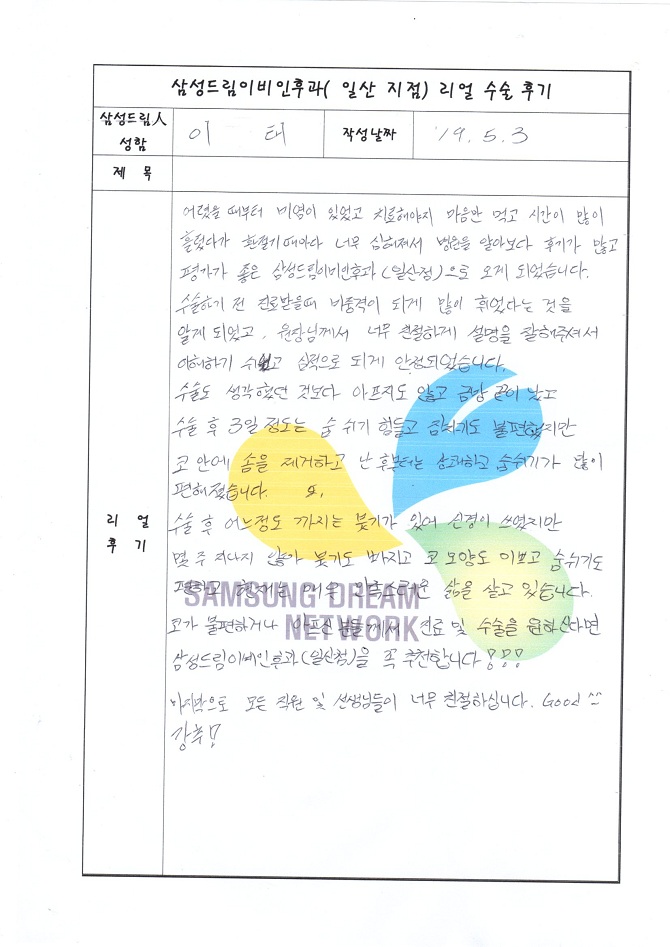 삼성드림이비인후과( 일산 지점) 리얼 수술 후기
삼성드림人 성함 이 태 작성날짜 '19. 5. 3
제 목
리 얼 후 기
어렸을 때부터 비염이 있었고 치료해야지 마음만 먹고 시간이 많이
흘렀다가 환절기때마다 너무 심해져서 병원을 알아보다 후기가 많고
평가가 좋은 삼성드림이비인후과(일산점)으로 오게 되었습니다.
수술하기 전 진료받을때 비중격이 되게 많이 휘었다는 것을
알게 되었고, 원장님께서 너무 친절하게 설명을 잘해주셔서
이해하기 쉬웠고 심적으로 되게 안정되었습니다.
수술도 생각했던 것보다 아프지도 않고 금방 끝이 났고
수술 후 3일 정도는 숨 쉬기 힘들고 잠자기도 불편했지만
코 안에 솜을 제거하고 난 후부터는 상쾌하고 숨쉬기가 많이
편해졌습니다.
수술 후 어느정도 까지는 붓기가 있어 신경이 쓰였지만
몇 주 지나지 않아 붓기도 빠지고 코 모양도 이쁘고 숨쉬기도
편하고 현재는 매우 만족스러운 삶을 살고 있습니다.
코가 불편하거나 아프신 분들께서 진료 및 수술을 원하신다면
삼성드림이비인후과(일산점)을 꼭 추천합니다!!!
마지막으로 모든 직원 및 선생님들이 너무 친절하십니다. Good ^^
강추!
SAMSUNG DREAM
NETWORK